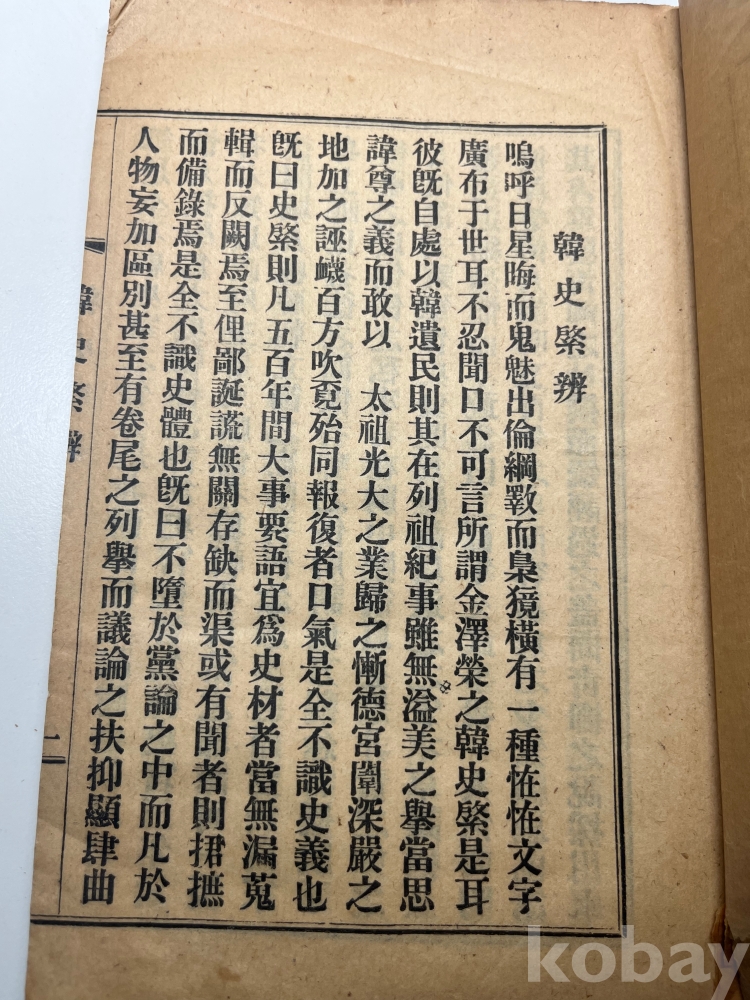 韓史綮辨
嗚呼日星晦而鬼魅出倫綱斁而梟獍橫有一種恠恠文字
廣布于世耳不忍聞口不可言所謂金澤榮之韓史綮是耳
彼旣自處以韓遺民則其在列祖紀事雖無溢美之擧當思
諱尊之義而敢以 太祖光大之業歸之慚德宮闈深嚴之
地加之誣衊百方吹覓殆同報復者口氣是全不識史義也
旣曰史綮則凡五百年間大事要語宜爲史材者當無漏蒐
輯而反闕焉至俚鄙誕謊無關存缺而渠或有聞者則捃摭
而備錄焉是全不識史體也旣曰不墮於黨論之中而凡於
人物妄加區別甚至有卷尾之列擧而議論之扶抑顯肆曲
韓史綮辨
一
kobay